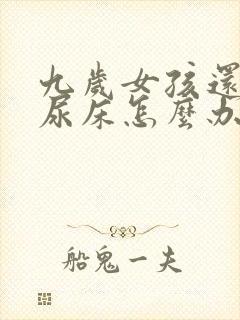 九歲女孩還
尿床怎麼办
船鬼一夫